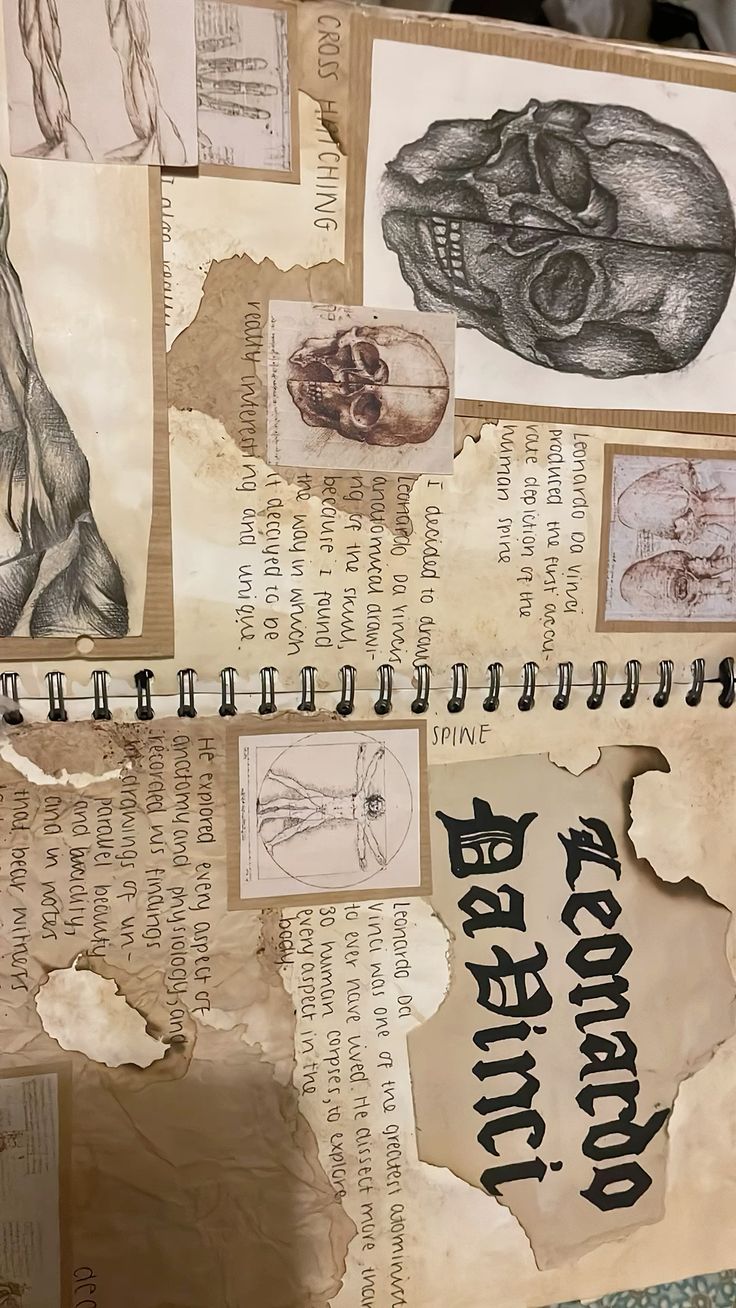 Leonardo Da Vinci
produced the first accu-
rate depiction of the
human spine
I decided to draw
Leonardo Da Vincis
anatomical drawi-
ng of the skull,
because I found
the way in which
it decayed to be
really interesting and unique.
CROSS HATCHING
I also really
SPINE
Leonardo
Da Vinci
Leonardo Da
Vinci was one of the greatest atominist
to ever have lived. He dissect more than
30 human corpses, to explore
every aspect in the
body.
He explored every aspect of
anatomy and physiology, and
recorded his findings
in drawings of un-
parallel beauty
and lucidity,
and in notes
that bear witness